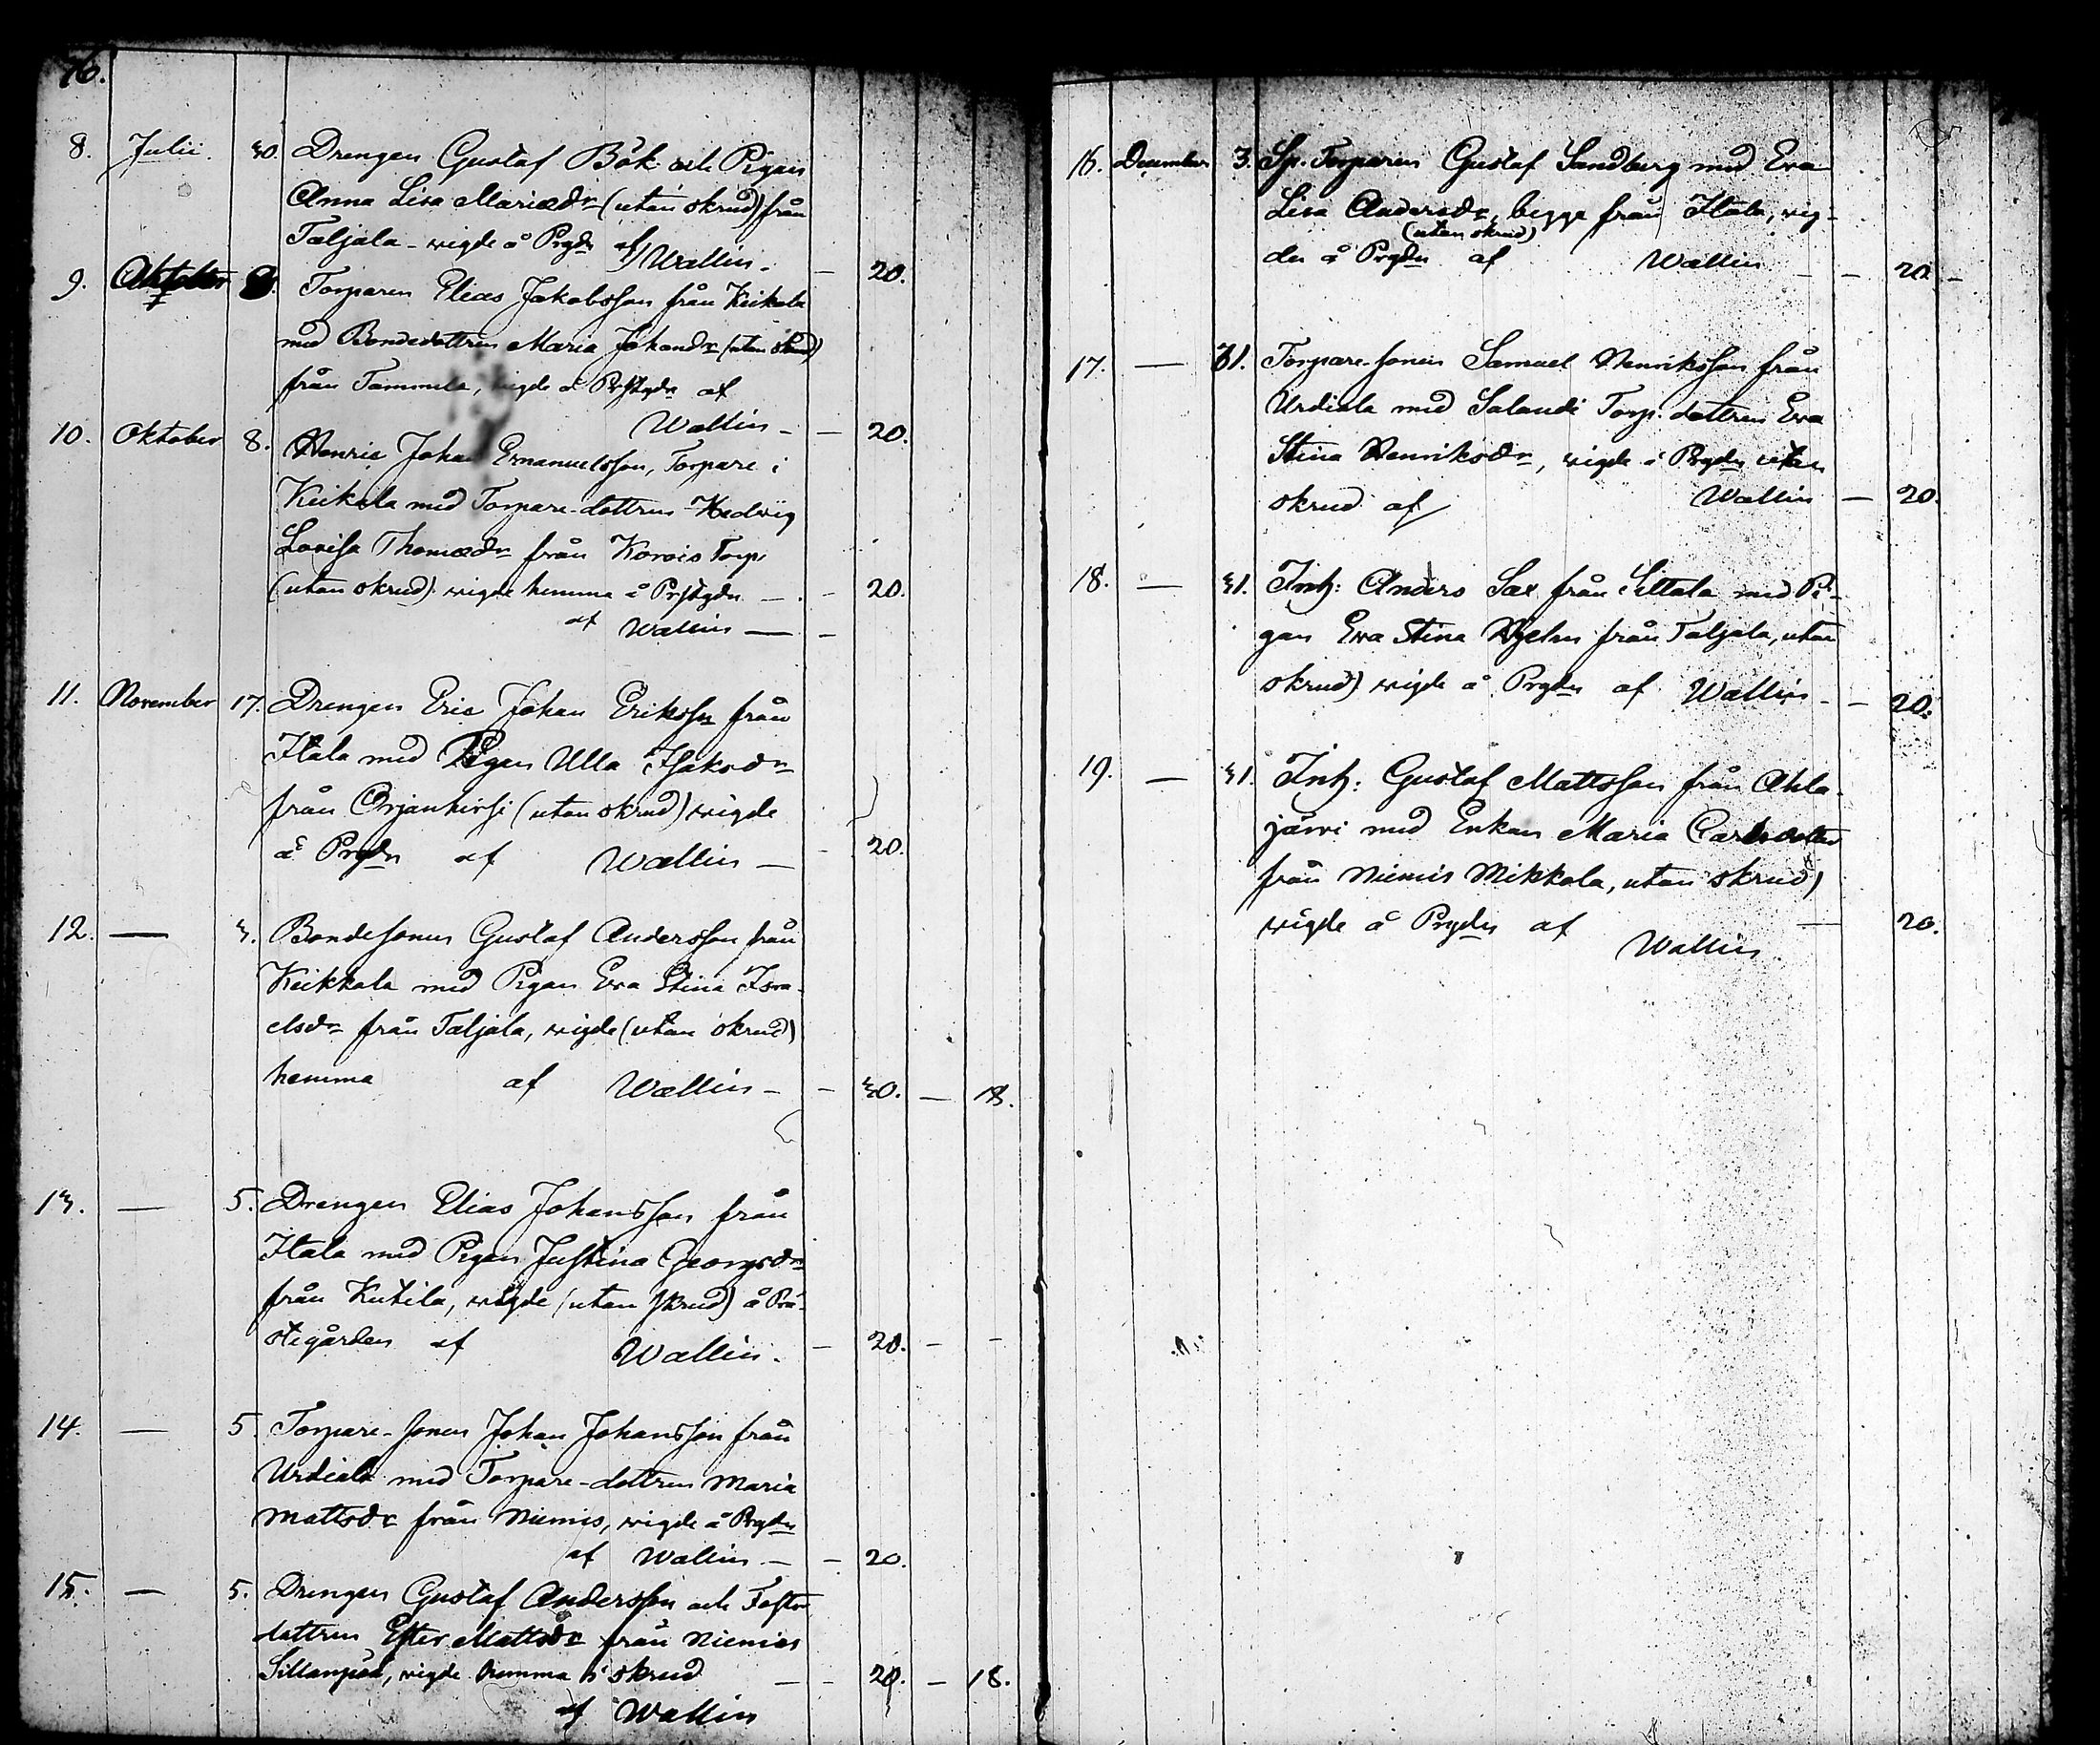 76.
8. Julii. 30. Drengen Gustaf Bök och Pigan
Anna Lisa Mariædr (utan skrud) från
Taljala - wigde å Prgdn af Wallin. — 20.
9. Oktober 8. Torparen Elias Jakobsson från Keikala
med Bondedottren Maria Johandr (utan skrud)
från Tammela, wigde å Prstgdn af
Wallin — — 20.
10. Oktober 8. Henric Johan Emanuelsson, Torpare i
Keikala med Torpare-dottren Hedwig
Lovisa Thomædr från Korois Torp.
(utan skrud) wigde hemma å Prstgdn — — 20.
af Wallin — —
11. November 17. Drengen Eric Johan Eriksson från
Itala med Pigan Ulla Isaksdr
från Orjanhirsi (utan skrud) wigde
å Prgdn af Wallin — — 20.
12. — 3. Bondesonen Gustaf Andersson från
Keikkala med Pigan Eva Stina Isra-
elsdr från Taljala, wigde (utan skrud)
hemma af Wallin — — 30. — 18.
13. — 5. Drengen Elias Johansson från
Itala med Pigan Justina Georgsdr
från Kutila, wigde (utan skrud) å Prä-
stegården af Wallin. — 20. — —
14. — 5. Torpare-sonen Johan Johansson från
Urdiala med Torpare-dottren Maria
Mattsdr från Niemis, wigde å Prgdn
af Wallin — — 20.
15. — 5. Drengen Gustaf Andersson och Foster
dottren Ester Mattsdr från Niemis
Sillanpää, wigde hemma i skrud — — 20. — 18.
af Wallin
16. December 3. Sp. Torparen Gustaf Sandberg med Eva
Lisa Andersdr, begge från Itala, wig-
(utan skrud)
de å Prgdn af Wallin — — 20 —
17. — 31. Torpare-sonen Samuel Henriksson från
Urdiala med Salaudi Torp. dottren Eva
Stina Henriksdr, wigde å Prgdn utan
skrud af Wallin — 20.
18. — 31. Inh: Anders Sax från Sittala med Pi-
gan Eva Stina från Taljala, utan
skrud) wigde å Prgdn af Wallin — — 20.
19. — 31. Inh: Gustaf Mattsson från Ahla-
järwi med Enkan Maria Carlsdotter
från Niemis Mikkola, utan skrud)
wigde å Prgdn af — 20.
Wallin